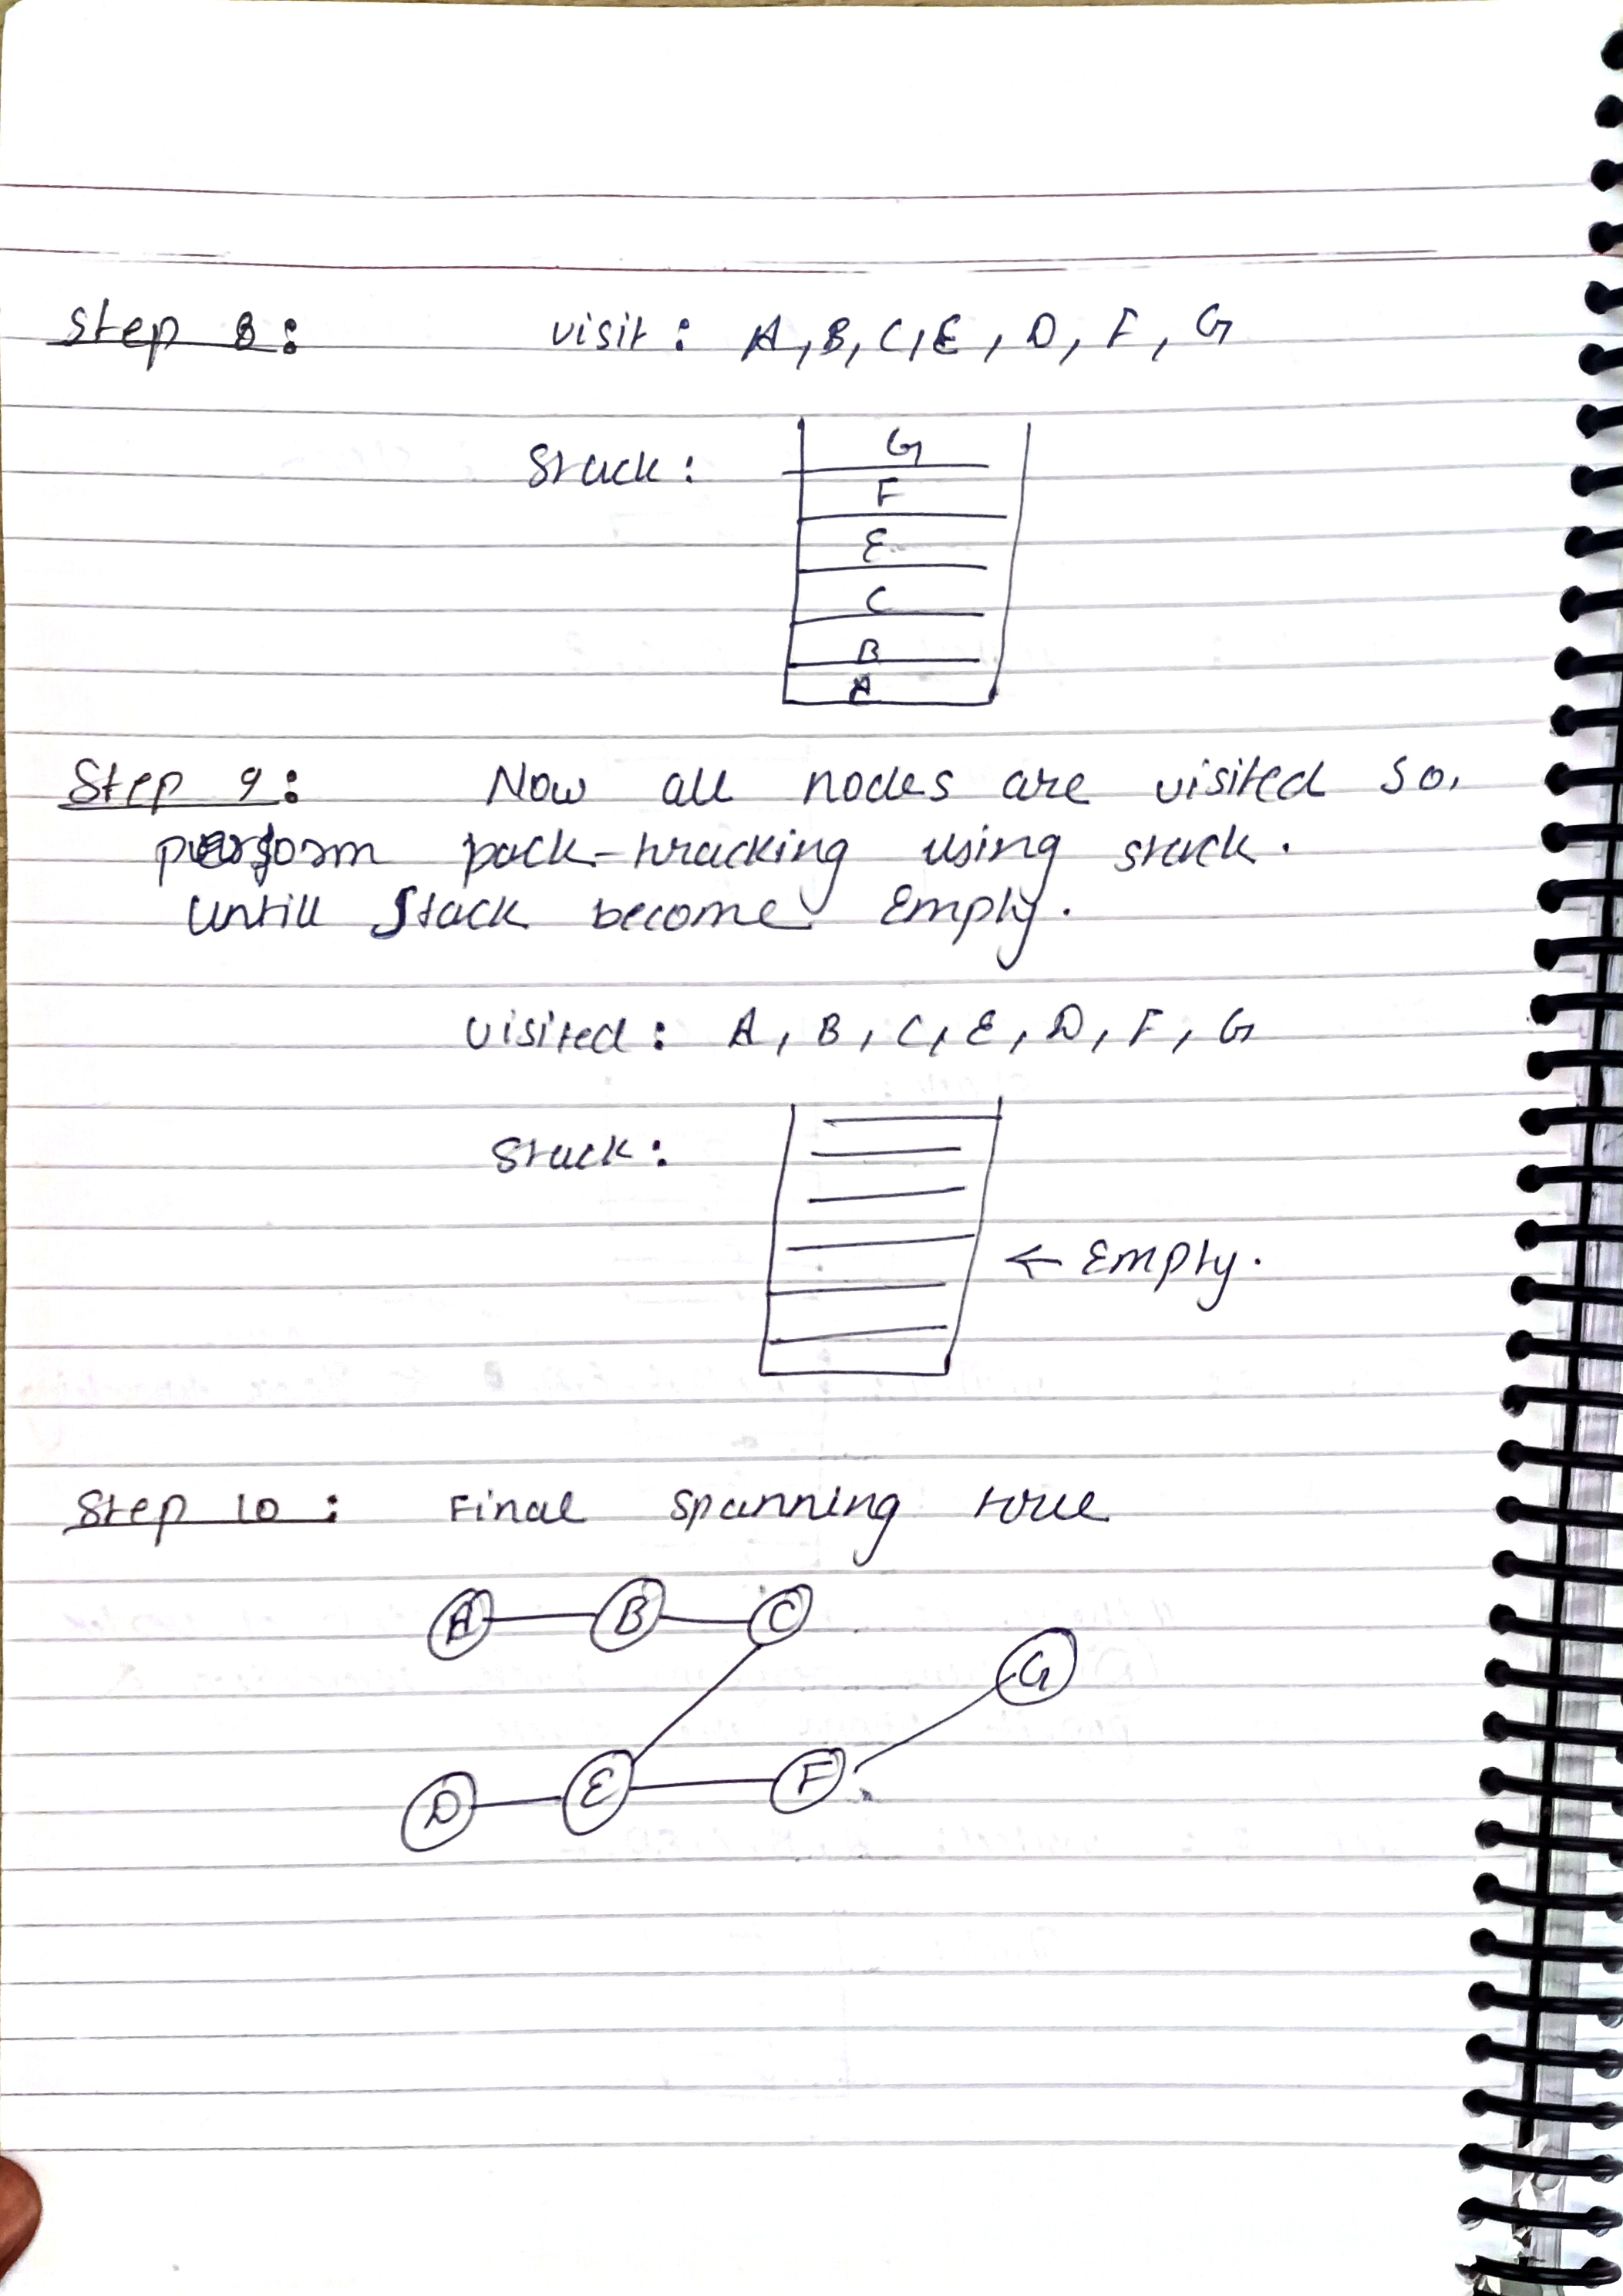 Step 8: visit: A, B, C, E, D, F, G
Stack:
G
F
E
C
B
A
Step 9: Now all nodes are visited so,
perform back-tracking using stack.
Untill Stack become Empty.
Visited: A, B, C, E, D, F, G
Stack:
← Empty.
Step 10: Final spanning tree
A B C
G
D E F